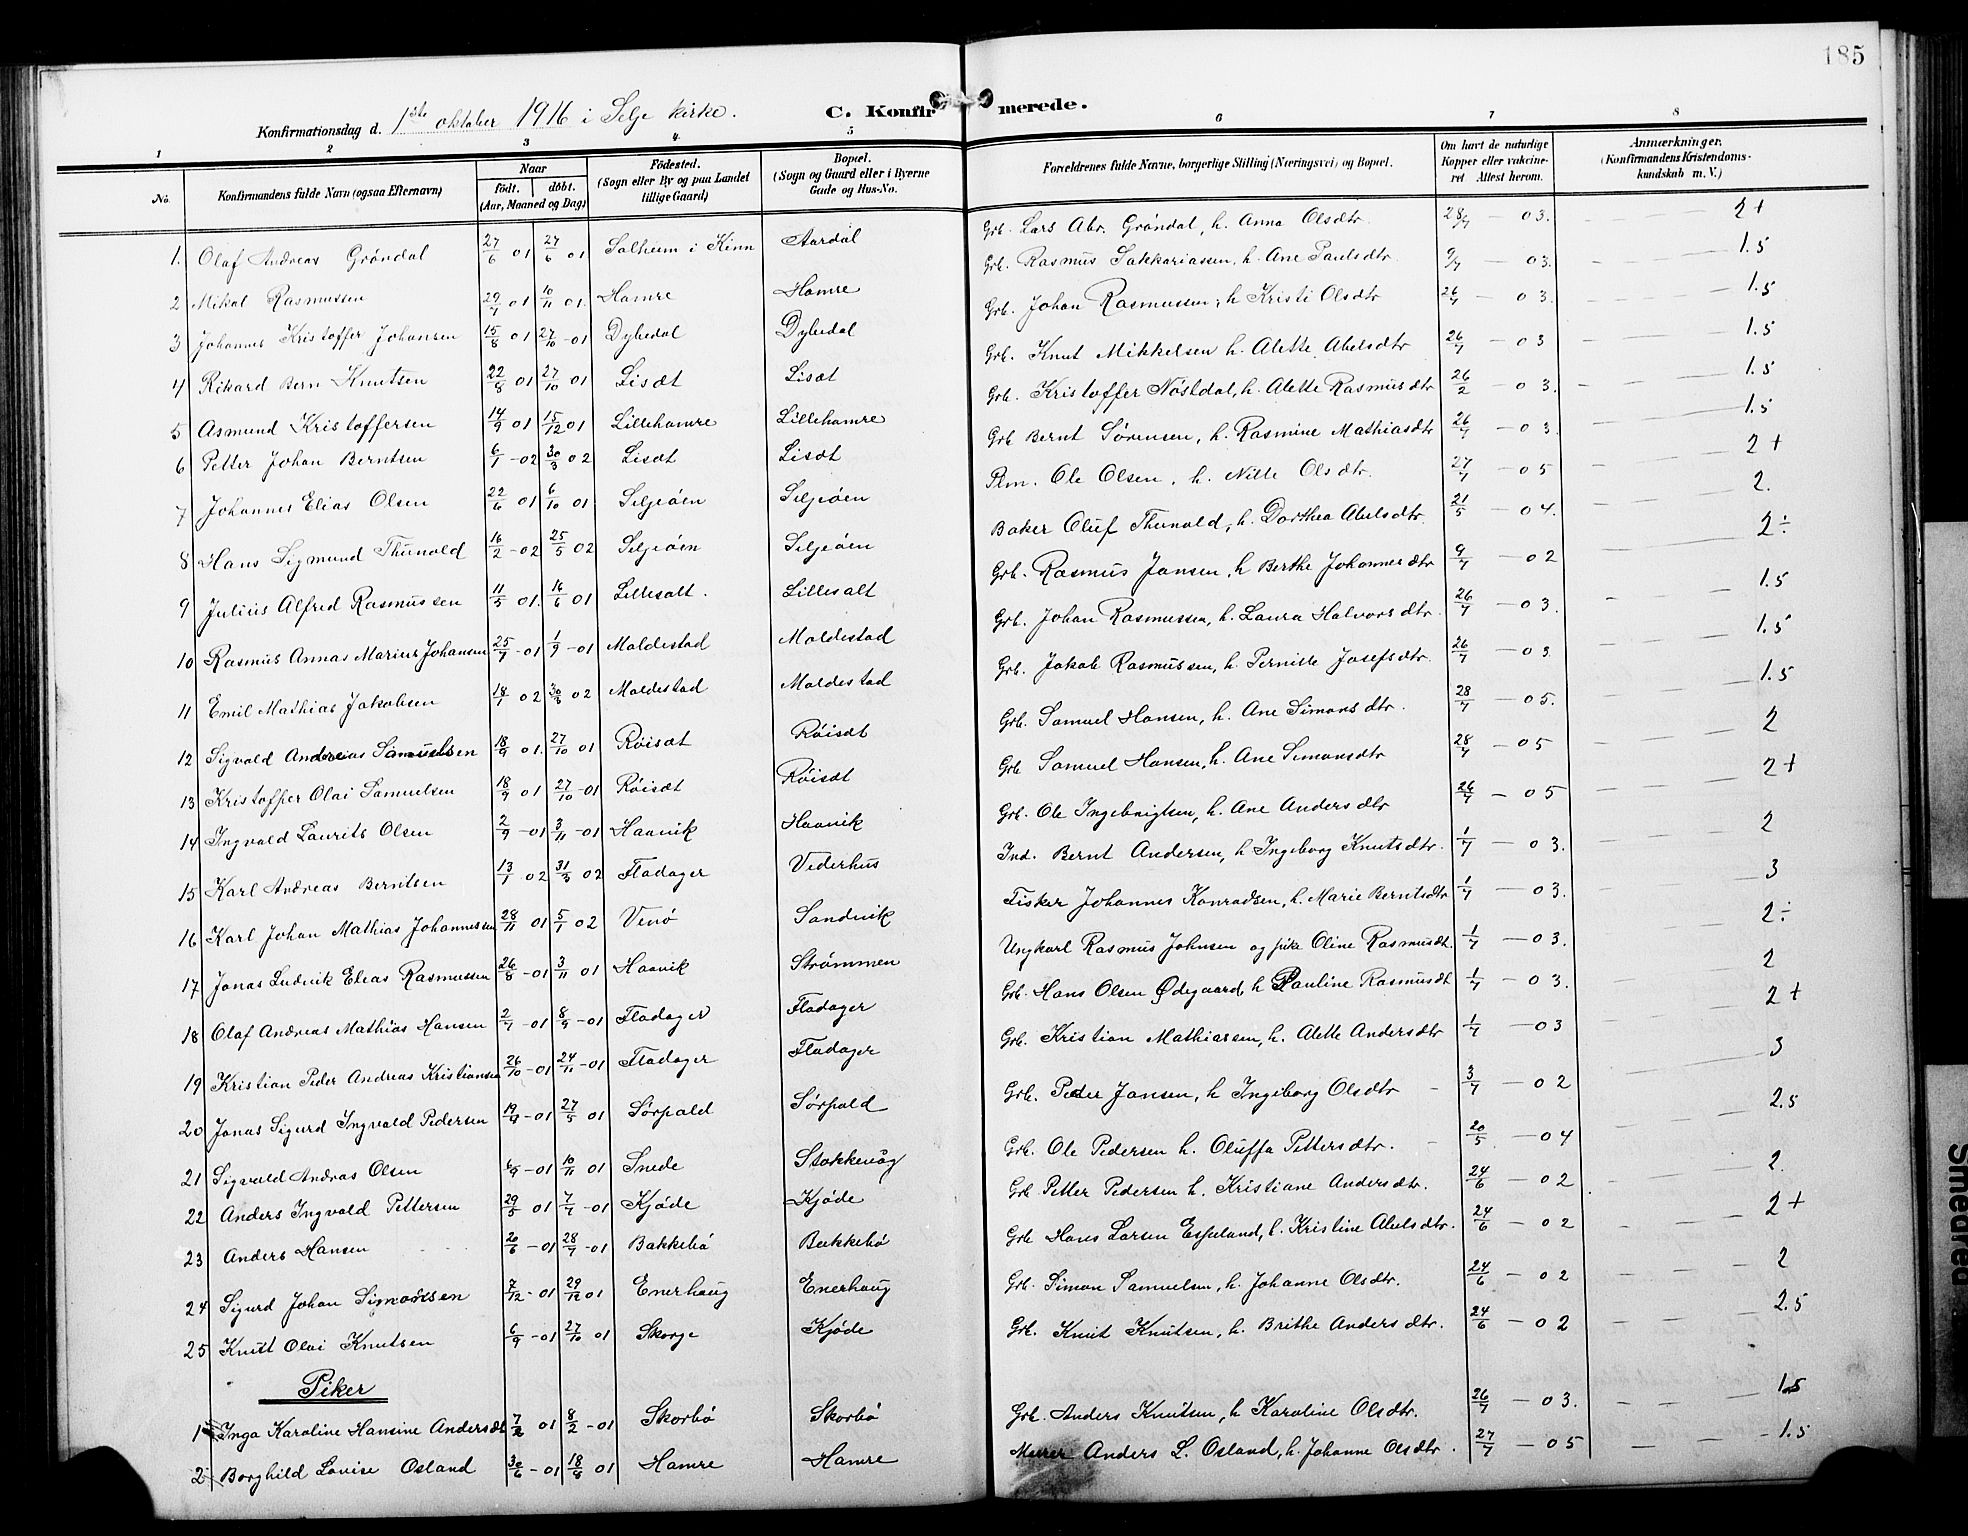 185
Konfirmationsdag d. 1ste oktober 1916 i Selje kirke. C. Konfirmerede.
1 2 3 4. 5 6 7 8
No. Konfirmandens fulde Navn (ogsaa Efternavn) Naar født. døbt. (Aar, Maaned og Dag) Fødested. (Sogn eller By og paa Landet tillige Gaard) Bopæl. (Sogn og Gaard eller i Byerne Gade og Hus-No. Forældrenes fulde Navne, borgerlige Stilling (Næringsvei) og Bopæl. Om havt de naturlige Kopper eller vakcineret Attest herom. Anmærkninger. (Konfirmandens Kristendomskundskab m. V.)
1. Olaf Andreas Grøndal 27/6 01 27/6 01 Solheim i Kinn Aardal Grb. Lars Abr. Grøndal, h. Anna Olsdtr. 28/7 — 03. 2+
2 Mikal Rasmussen 29/7 01 10/11 01. Hamre Hamre Grb. Rasmus Sakkariassen, h. Ane Paulsdtr. 9/7 — 03. 1.5
3 Johannes Kristoffer Johansen 15/8 01 27/10 - 01 Dybedal Dybedal Grb. Johan Rasmussen, h Kristi Olsdtr 26/7 — 03. 1.5
4 Rikard Bern Knutsen 22/8 01 27/10 01 Lisæt Lisæt Grb. Knut Mikkelsen h. Alette Abelsdtr 26/7 — 03 1.5
5 Asmund Kristoffersen 14/9 01 15/12 01 Lillehamre Lillehamre Grb. Kristoffer Nøstdal, h. Alette Rasmusdtr 26/2 — 03. 1.5
6 Petter Johan Berntsen 6/1 - 02 30/3 02 Lisæt Lisæt Grb Bernt Sørensen, h. Rasmine Mathiasdtr 26/7 — 03. 1.5
7 Johannes Elias Olsen 22/6 01 6/10 01 Seljeøen Seljeøen Plm. Ole Olsen, h. Nille Olsdtr. 27/7 — 05 2+
8 Hans Sigmund Thunold 16/2 - 02 25/5 02 Seljeøen Seljeøen Baker Oluf Thunold, h. Dorthea Abelsdtr. 21/5 — 04. 2.
9 Julius Alfred Rasmussen 11/5 01. 16/6 01 Lillesalt. Lillesalt Grb. Rasmus Jansen, h Berthe Johannesdtr 9/7 — 02 2÷
10 Rasmus Annas Marius Johansen 25/7 - 01 1/9 - 01 Moldestad Moldestad Grb. Johan Rasmussen, h. Laura Halvorsdtr. 26/7 — 03. 1.5
11 Emil Mathias Jakobsen 18/1 02 30/3 02 Moldestad Moldestad Grb. Jakob Rasmussen, h. Pernille Josefsdtr. 26/7 — 03 1.5
12 Sigvald Andreas Samuelsen 18/9 01. 27/10 01 Røisæt Røisæt Grb. Samuel Hansen, h. Ane Simonsdtr. 28/7 — 05. 1.5
13 Kristoffer Olai Samuelsen 18/9 01 27/10 - 01 Røisæt Røisæt Grb Samuel Hansen, h. Ane Simonsdtr 28/7 — 05 2
14 Ingvald Laurits Olsen 2/9 - 01 3/11 - 01 Haavik Haavik Grb. Ole Ingebrigtsen, h. Ane Andersdtr 26/7 — 05 2+
15 Karl Andreas Berntsen 13/1 02 31/3 02 Fladager Vederhus Ind. Bernt Andersen, h Ingeborg Knutsdtr. 1/7 — 03. 2
16 Karl Johan Mathias Johannessen 28/11 01 5/1 02 Venø Sandvik Fisker Johannes Konradsen, h. Marie Berntsdtr 1/7 — 03. 3
17 Jonas Ludvik Elias Rasmussen 26/8 - 01 3/11 01 Haavik Strømmen Ungkarl Rasmus Johnsen og pike Oline Rasmusdt. 1/7 — 03. 2÷
18 Olaf Andreas Mathias Hansen 2/7 - 01 8/9 - 01 Fladager Fladager Grb. Hans Olsen Ødegaard, h Pauline Rasmusdt 1/7 — 03. 2
19 Kristian Peder Andreas Kristiansen 26/10 - 01 24/11 - 01 Fladager Fladager Grb. Kristian Mathiassen, h. Alette Andersdtr 1/7 — 03 2+
20 Jonas Sigurd Ingvald Pedersen 19/4 - 01 27/5 01 Sørpold Sørpold Grb. Peder Jansen, h Ingeborg Olsdtr 3/7 — 02 3
21 Sigvald Andras Olsen 6/9 - 01 10/11 01 Snede Stokkevaag Grb. Ole Pedersen h. Oluffa Pettersdtr. 20/5 — 04 2.5
22 Anders Ingvald Pettersen 29/5 01 7/7 - 01 Kjøde Kjøde Grb Petter Pedersen h. Kristiane Andersdtr. 24/6 — 02 2.
23 Anders Hansen 20/6 - 01 28/7 - 01 Bakkebø Bakkebø Grb Hans Larsen Espeland, h. Kristine Abelsdtr. 24/6 — 02 2+
24 Sigurd Johan Simonsen 7/12 - 01 29/12 01 Enerhaug Enerhaug Grb. Simon Samuelsen, h. Johanne Olsdtr. 24/6 — 02 2
25 Knut Olai Knutsen 6/9 - 01 27/10 01 Skorge Kjøde Grb. Knut Knutsen, h. Brithe Andersdtr. 24/6 — 02 2.5
Piker
1 Inga Karoline Hansine Andersdt 7/2 01 8/2 - 01 Skorbø Skorbø Grb. Anders Knutsen, h Karoline Olsdtr. 26/7 — 03. 1.5
2 Borghild Lovise Osland 30/6 - 01 18/8 01 Hamre Hamre Murer Anders L. Osland, h. Johanne Olsdtr. 27/7 — 05 1.5
Smedred